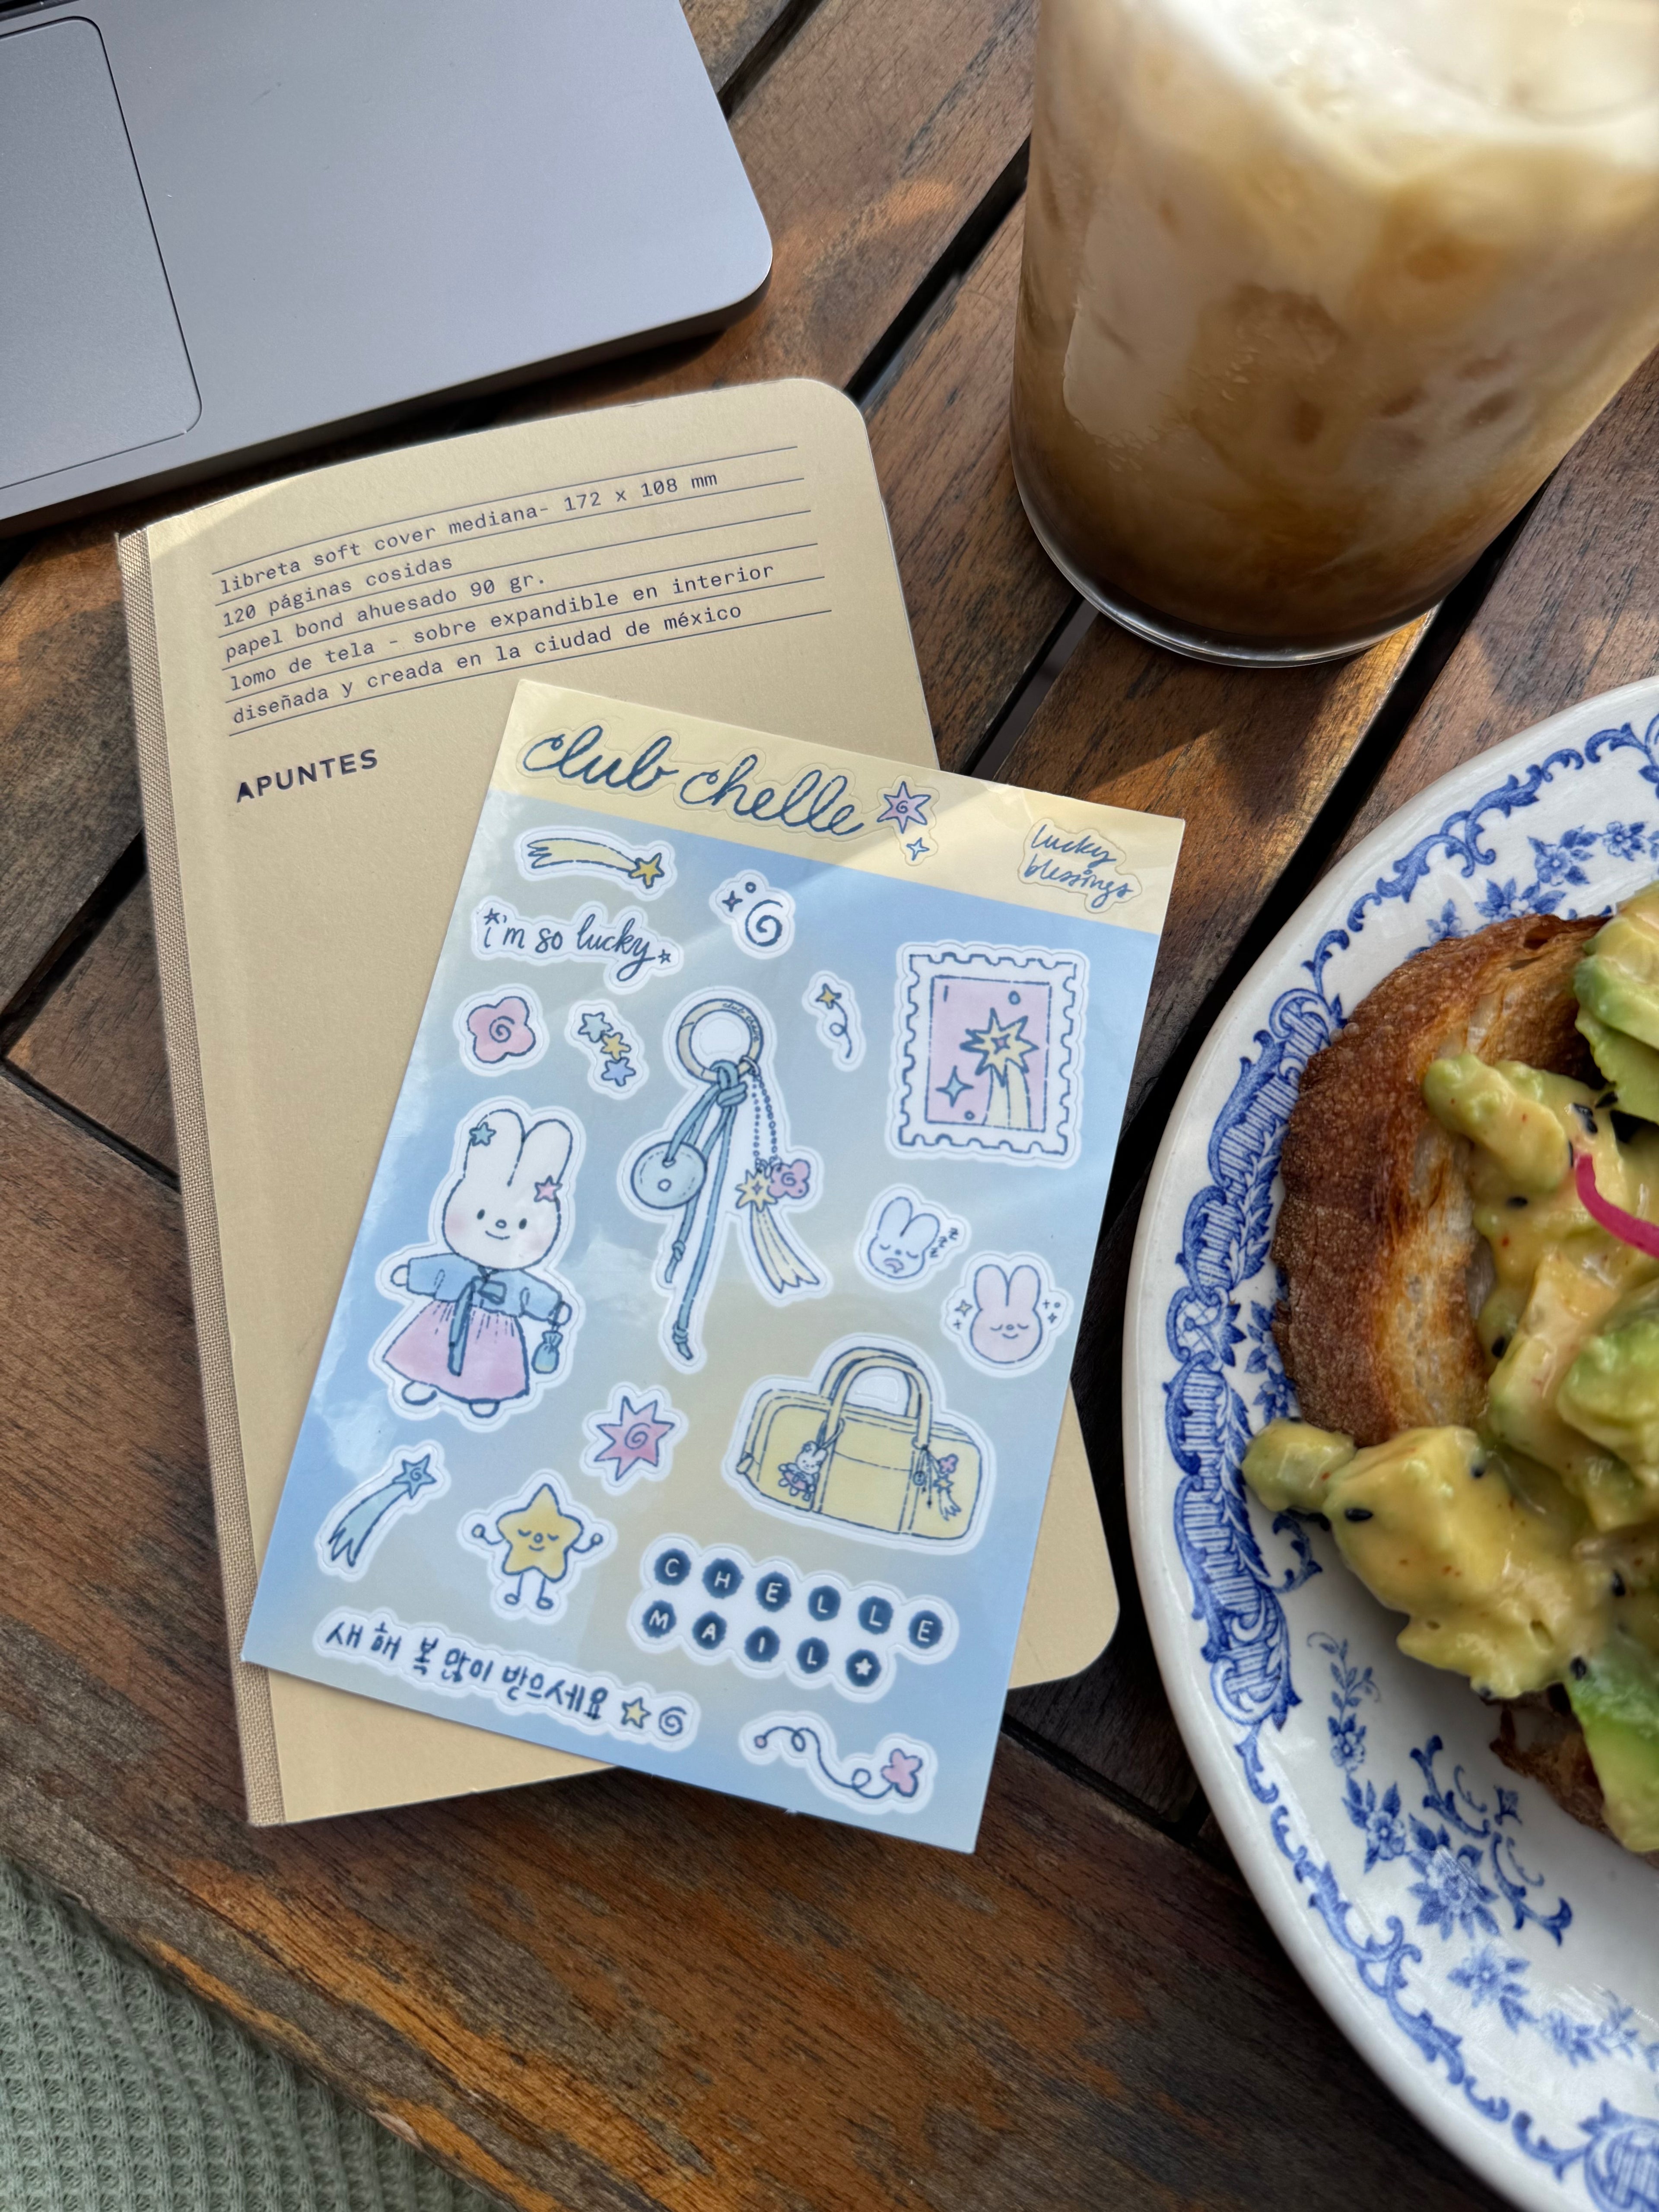 libreta soft cover mediana- 172 x 108 mm
120 páginas cosidas
papel bond ahuesado 90 gr.
lomo de tela - sobre expandible en interior
diseñada y creada en la ciudad de méxico
APUNTES
club chelle
lucky
blessings
i'm so lucky
zzz
CHELLE
MAIL
새해 복 많이 받으세요